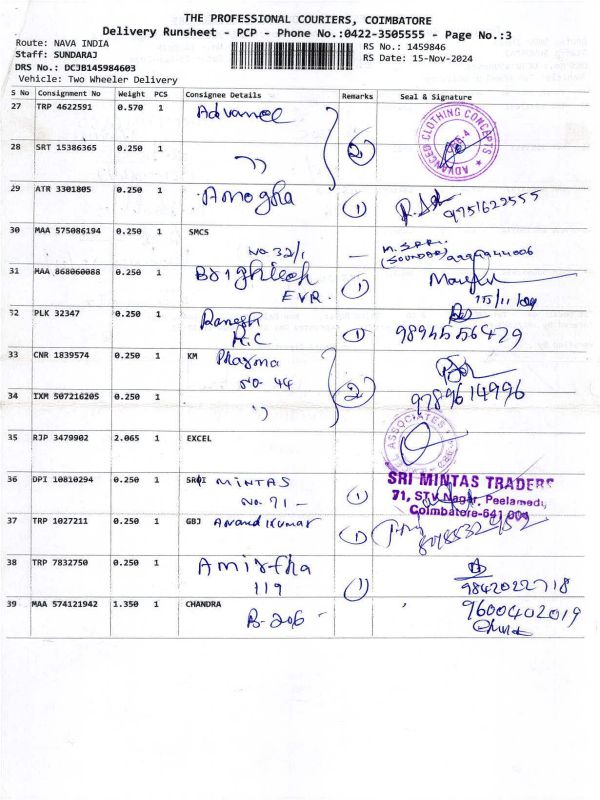 THE PROFESSIONAL COURIERS, COIMBATORE
Delivery Runsheet - PCP - Phone No.:0422-3505555 - Page No.:3
Route: NAVA INDIA
RS No.: 1459846
Staff: SUNDARAJ
RS Date: 15-Nov-2024
DRS No.: DCJB145984603
Vehicle: Two Wheeler Delivery
S No Consignment No Weight PCS Consignee Details Remarks Seal & Signature
27 TRP 4622591 0.570 1 Advanced
ADVANCED CLOTHING CONCEPTS
28 SRT 15386365 0.250 1 " 2
29 ATR 3301805 0.250 1 Amogha 1 9751622555
30 MAA 575086194 0.250 1 SMCS
No 32/1 — (SOUNDAR)
31 MAA 868060088 0.250 1
EVR. 1 15/11/24
32 PLK 32347 0.250 1 Ramesh
K.C 1 9894556429
33 CNR 1839574 0.250 1 KM Pharma
No- 44 2 9789614996
34 IXM 507216205 0.250 1 "
35 RJP 3479902 2.065 1 EXCEL
ASSOCIATES
36 DPI 10810294 0.250 1 SRI MINTAS
No. 71 — 1
SRI MINTAS TRADERS
71, STV Nagar, Peelamedu,
Coimbatore-641 004
37 TRP 1027211 0.250 1 GBJ Anand Kumar 1
38 TRP 7832750 0.250 1 Amirtha
119 1 9842022718
39 MAA 574121942 1.350 1 CHANDRA
B-206 - 9600402019